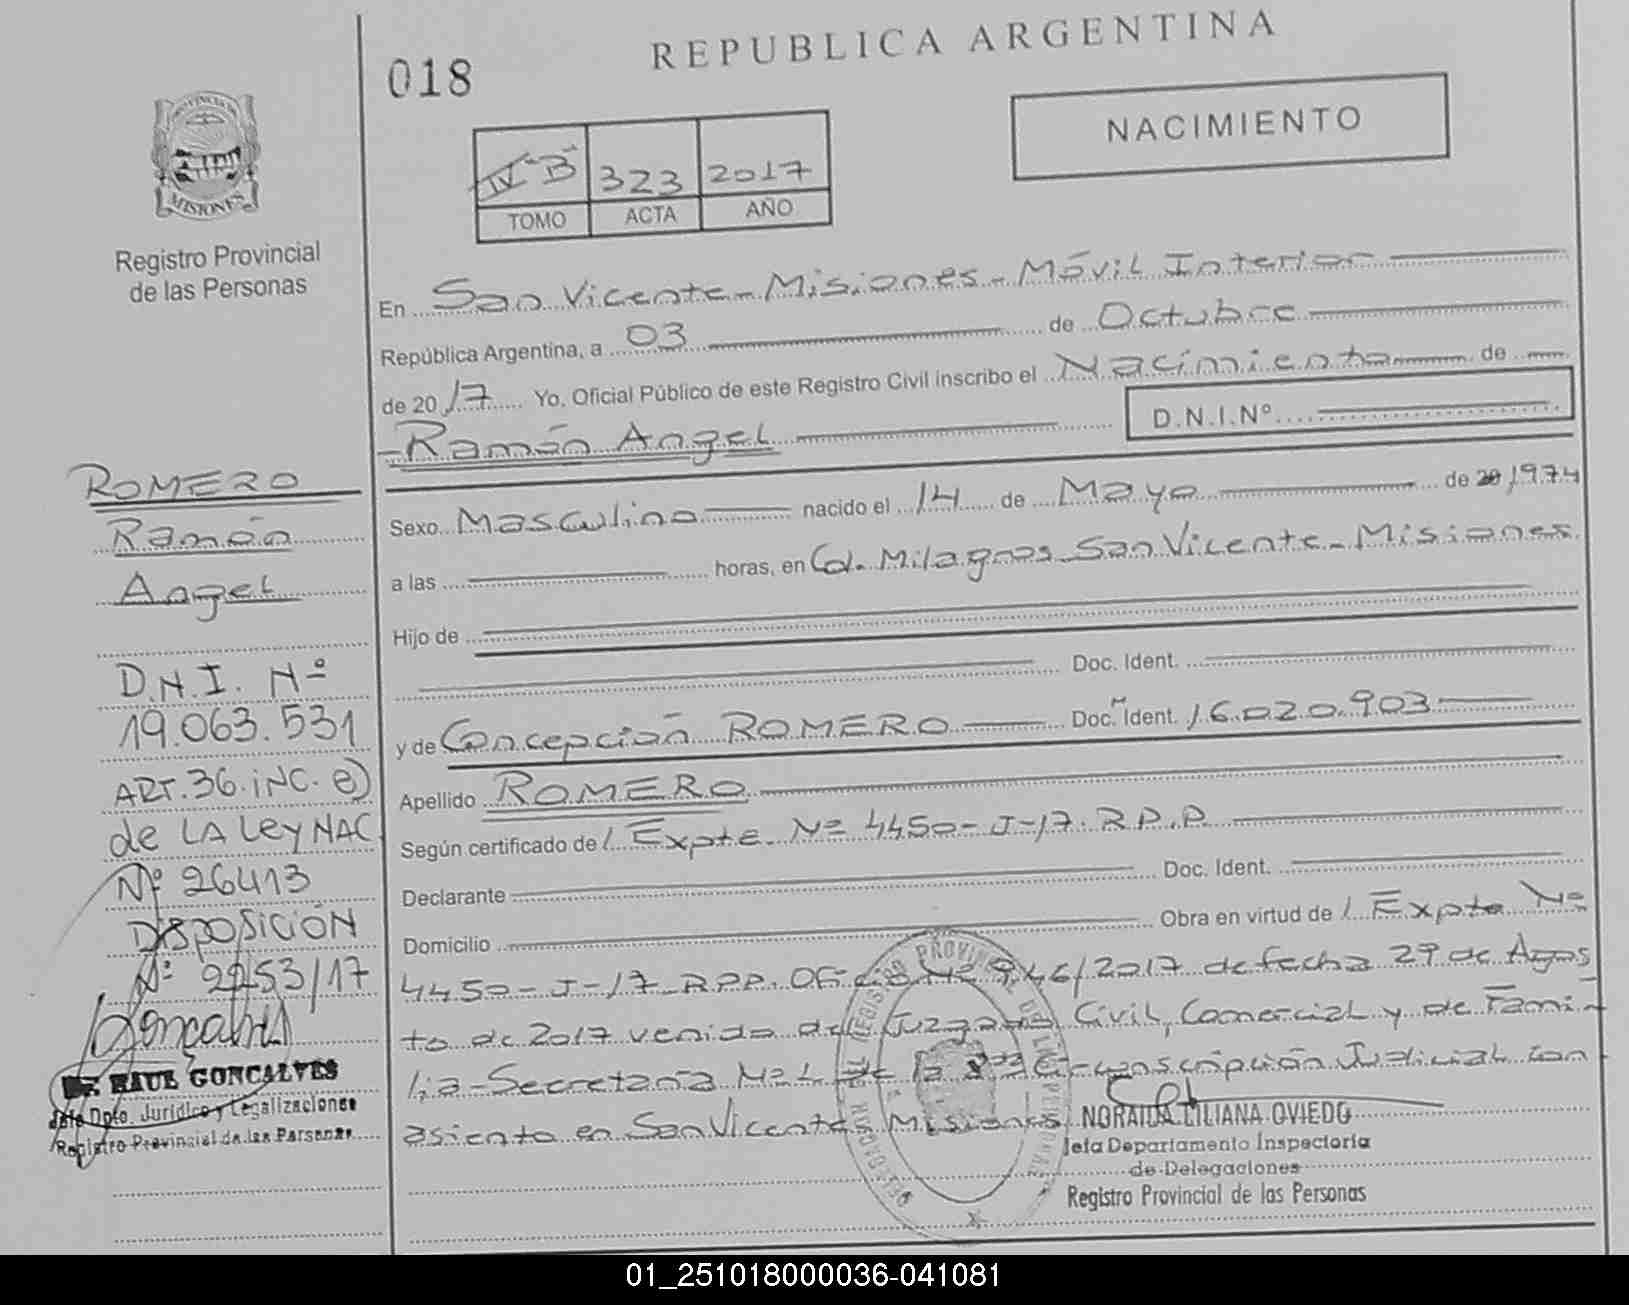 REPUBLICA ARGENTINA
018
NACIMIENTO
PROVINCIA DE
MISIONES
Registro Provincial
de las Personas
IV "B" 323 2017
TOMO ACTA AÑO
En San Vicente - Misiones - Móvil Interior
República Argentina, a 03 de Octubre
de 2017 Yo, Oficial Público de este Registro Civil inscribo el Nacimiento de
Ramón Angel D.N.I.Nº
Sexo Masculino nacido el 14 de Mayo de 20 1974
a las horas, en Col. Milagros San Vicente - Misiones
Hijo de
Doc. Ident.
y de Concepción ROMERO Doc. Ident. M 16.020.903
Apellido ROMERO
Según certificado de / Expte. Nº 4450-J-17.R.P.P
Declarante Doc. Ident.
Domicilio Obra en virtud de / Expte Nº
4450-J-17-RPP. Oficio Nº 946/2017 de fecha 29 de Agos
to de 2017 venido del Juzgado Civil, Comercial y de Fami-
lia - Secretaría Nº 1 de la Circunscripción Judicial con
asiento en San Vicente Misiones
ROMERO
Ramón
Angel
D.N.I. Nº
19.063.531
ART. 36. iNC. e)
de LA Ley NAC.
Nº 26413
DISPOSICIÓN
Nº 2253/17
RAUL GONCALVES
Jefe Dpto. Jurídico y Legalizaciones
Registro Provincial de las Personas
NORAIDA LILIANA OVIEDO
Jefa Departamento Inspectoría
de Delegaciones
Registro Provincial de las Personas
01_251018000036-041081